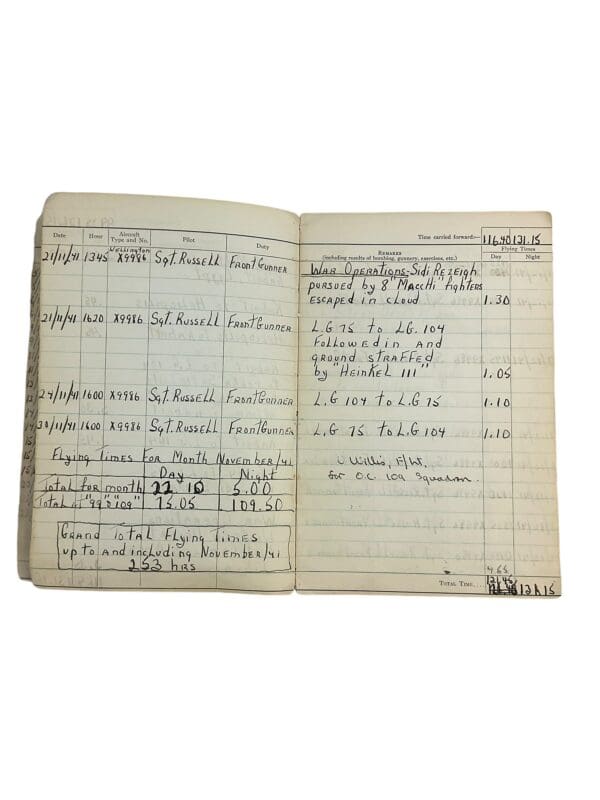 Date Hour Aircraft Type and No. Pilot Duty
21/11/41 1345 Wellington X9986 Sgt. Russell Front Gunner
21/11/41 1620 X9986 Sgt. Russell Front Gunner
24/11/41 1600 X9986 Sgt. Russell Front Gunner
30/11/41 1600 X9986 Sgt. Russell Front Gunner
Flying Times For Month November/41
Day Night
Total for month 22 10 5.00
Total at "99" & "109" 75.05 109.50
Grand Total Flying Times
up to and including November/41
253 hrs
Time carried forward:— 116.40 131.15
Remarks Flying Times
(including results of bombing, gunnery, exercises, etc.) Day Night
War Operations - Sidi Rezeigh
pursued by 8 "Macchi" fighters
escaped in cloud 1.30
L.G 75 to LG. 104
Followed in and
ground straffed
by "Heinkel III" 1.05
L.G 104 to L.G 75 1.10
L.G. 75 to L.G 104 1.10
Willis, F/Lt.
for O.C. 109 Squadron.
4.55
121.45
Total Time....